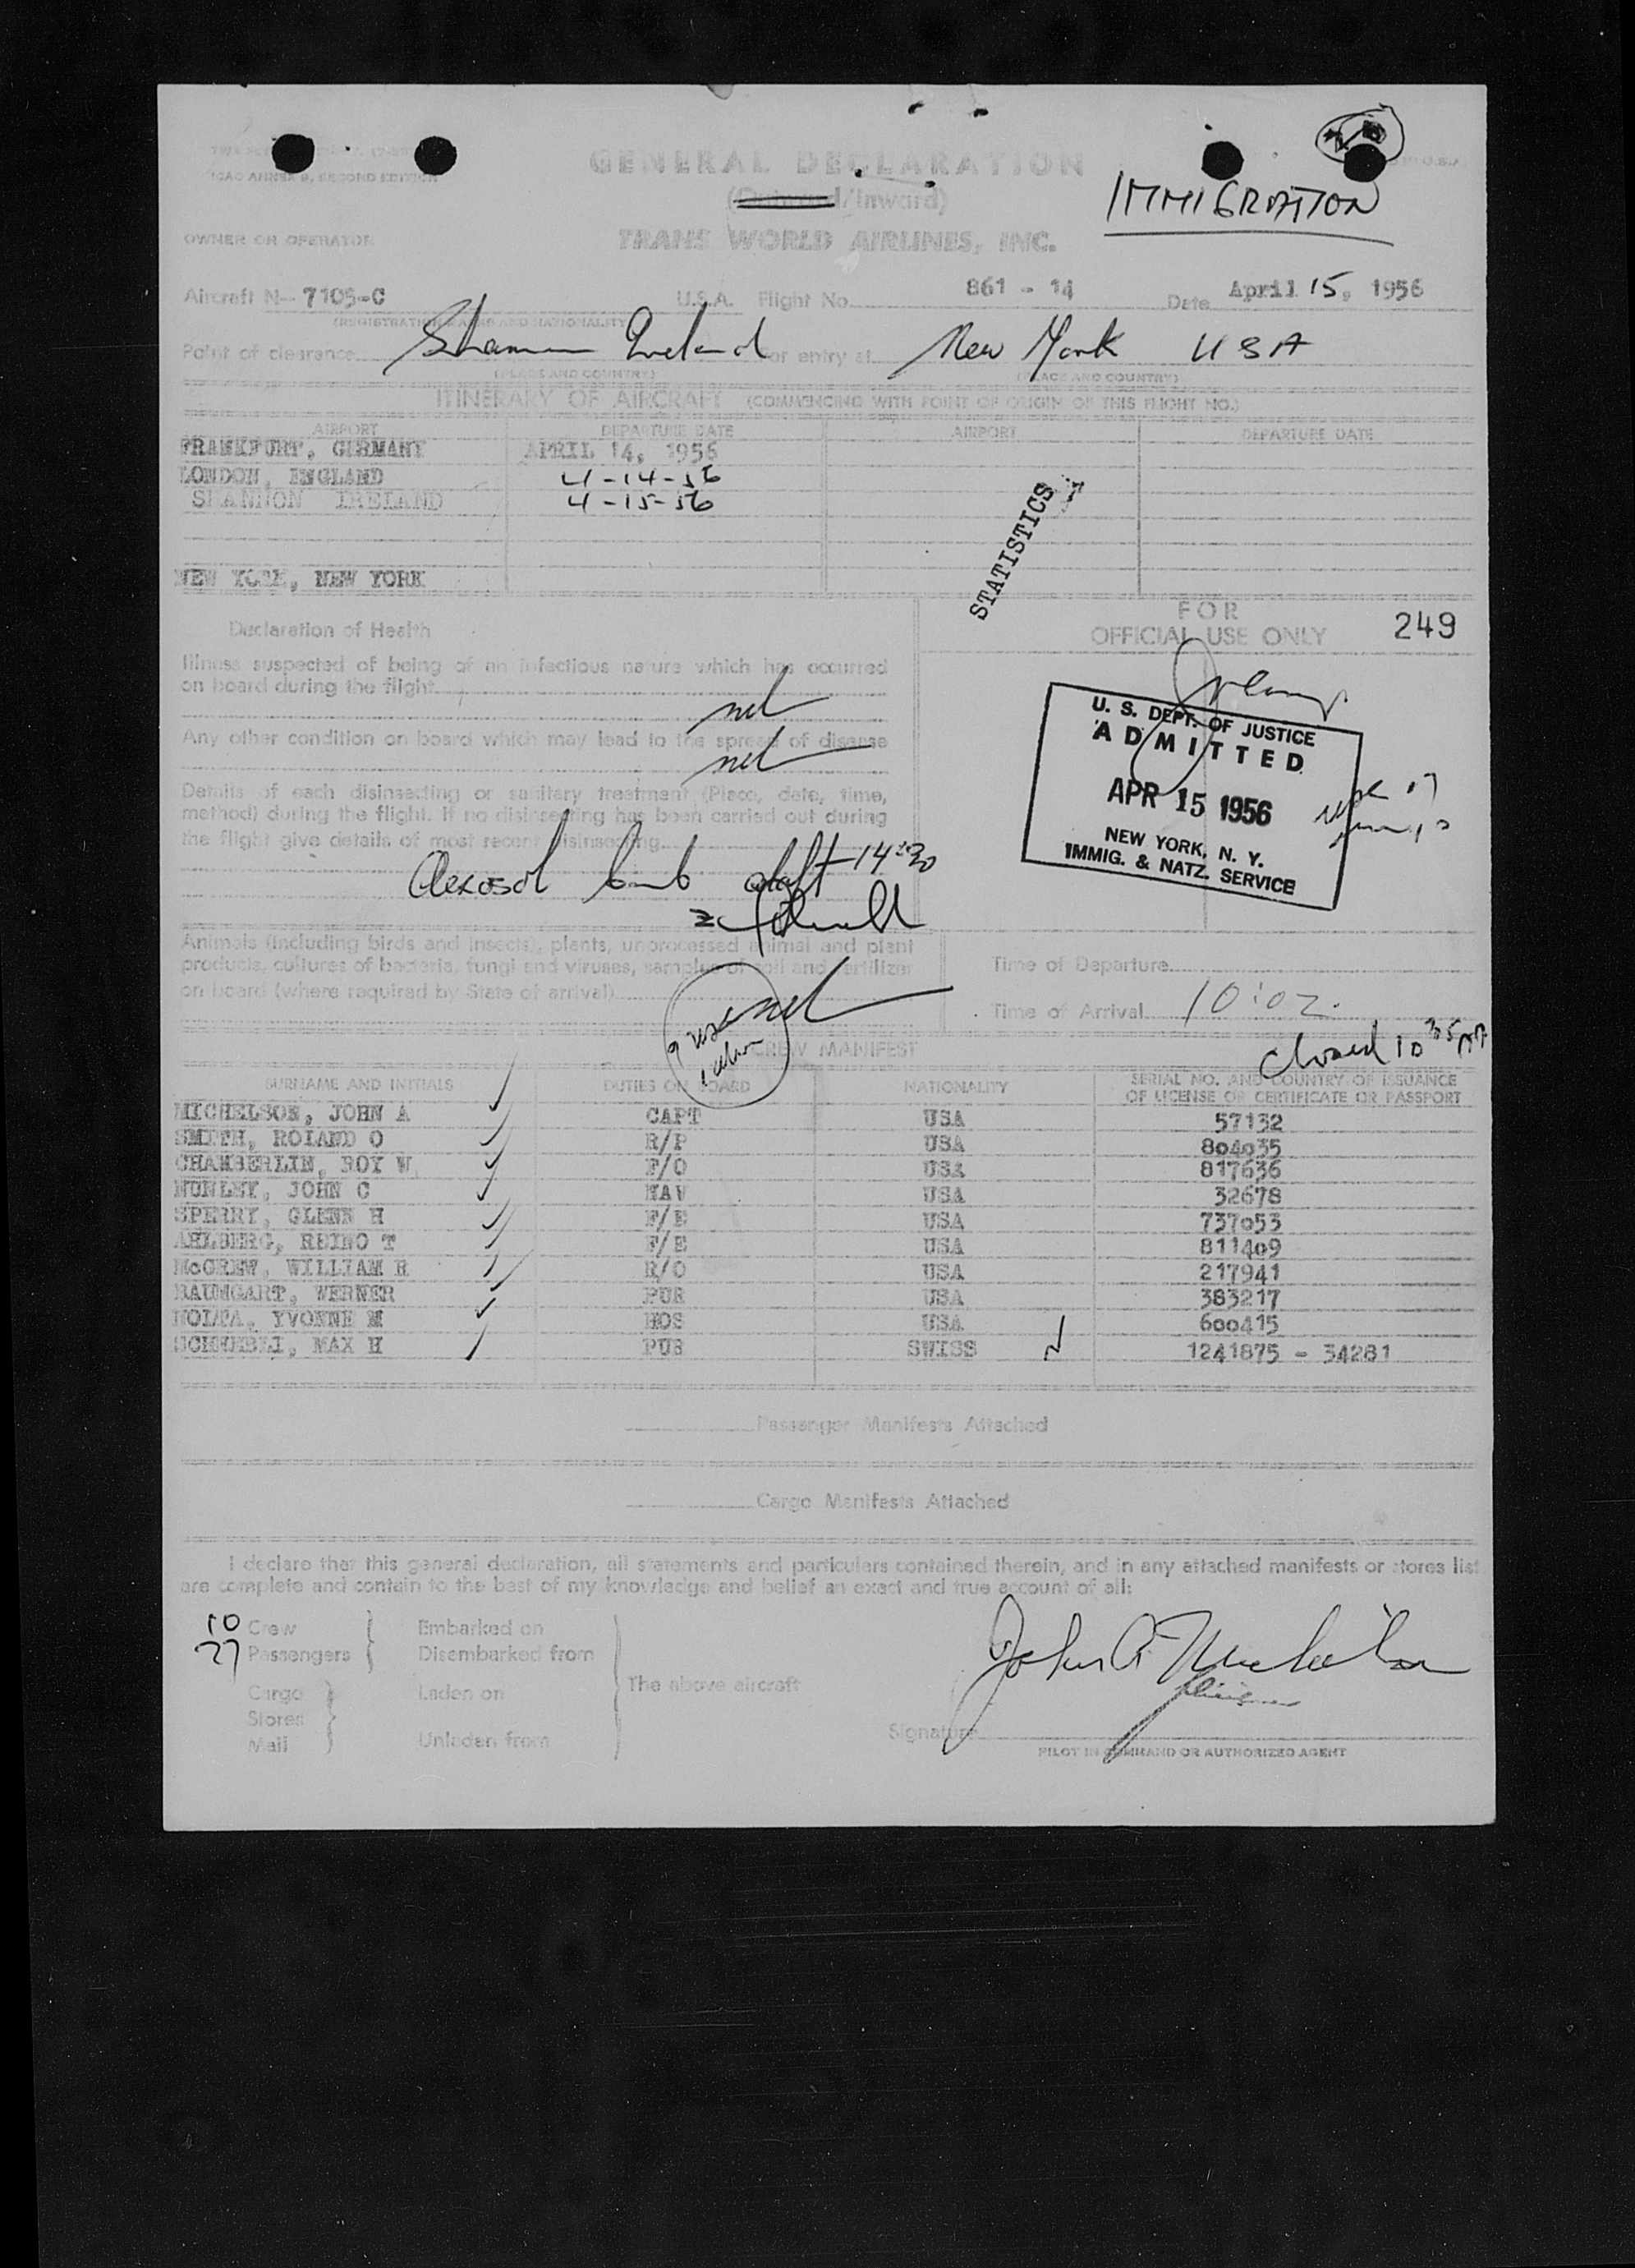 ICAO ANNEX 9, SECOND EDITION
GENERAL DECLARATION
(Outward/Inward)
IMMIGRATION
OWNER OR OPERATOR
TRANS WORLD AIRLINES, INC.
Aircraft N- 7105-C U.S.A. Flight No. 861 - 14 Date April 15, 1956
(REGISTRATION MARKS AND NATIONALITY)
Point of clearance Shannon Ireland or entry at New York USA
(PLACE AND COUNTRY) (PLACE AND COUNTRY)
ITINERARY OF AIRCRAFT (COMMENCING WITH POINT OF ORIGIN OF THIS FLIGHT NO.)
AIRPORT DEPARTURE DATE AIRPORT DEPARTURE DATE
FRANKFURT, GERMANY APRIL 14, 1956
LONDON, ENGLAND 4-14-56
SHANNON IRELAND 4-15-56
STATISTICS
NEW YORK, NEW YORK
FOR
OFFICIAL USE ONLY 249
Declaration of Health
Illness suspected of being of an infectious nature which has occurred
on board during the flight
nil
Any other condition on board which may lead to the spread of disease
nil
Details of each disinsecting or sanitary treatment (Place, date, time,
method) during the flight. If no disinsecting has been carried out during
the flight give details of most recent disinsecting
Aerosol bomb 14:30
U. S. DEPT. OF JUSTICE
ADMITTED
APR 15 1956
NEW YORK, N. Y.
IMMIG. & NATZ. SERVICE
Animals (including birds and insects), plants, unprocessed animal and plant
products, cultures of bacteria, fungi and viruses, samples of soil and fertilizer
on board (where required by State of arrival)
nil
Time of Departure
Time of Arrival 10:02
Closed 10 35 AM
CREW MANIFEST
SURNAME AND INITIALS DUTIES ON BOARD NATIONALITY SERIAL NO. AND COUNTRY OF ISSUANCE
OF LICENSE OR CERTIFICATE OR PASSPORT
MICHELSON, JOHN A CAPT USA 57132
SMITH, ROLAND O R/P USA 804035
CHAMBERLIN, ROY W F/O USA 817636
JOHN C NAV USA 32678
SPERRY, GLENN H F/E USA 737053
AHLBERG, REINO T F/E USA 811409
McCREW, WILLIAM R R/O USA 217941
BAUMGART, WERNER PUR USA 383217
YVONNE M HOS USA 600415
MAX H PUR SWISS 1241875 - 34281
Passenger Manifests Attached
Cargo Manifests Attached
I declare that this general declaration, all statements and particulars contained therein, and in any attached manifests or stores list
are complete and contain to the best of my knowledge and belief an exact and true account of all:
10 Crew Embarked on
27 Passengers Disembarked from
The above aircraft
Cargo Laden on
Stores
Mail Unladen from
John A Michelson
Signature
PILOT IN COMMAND OR AUTHORIZED AGENT